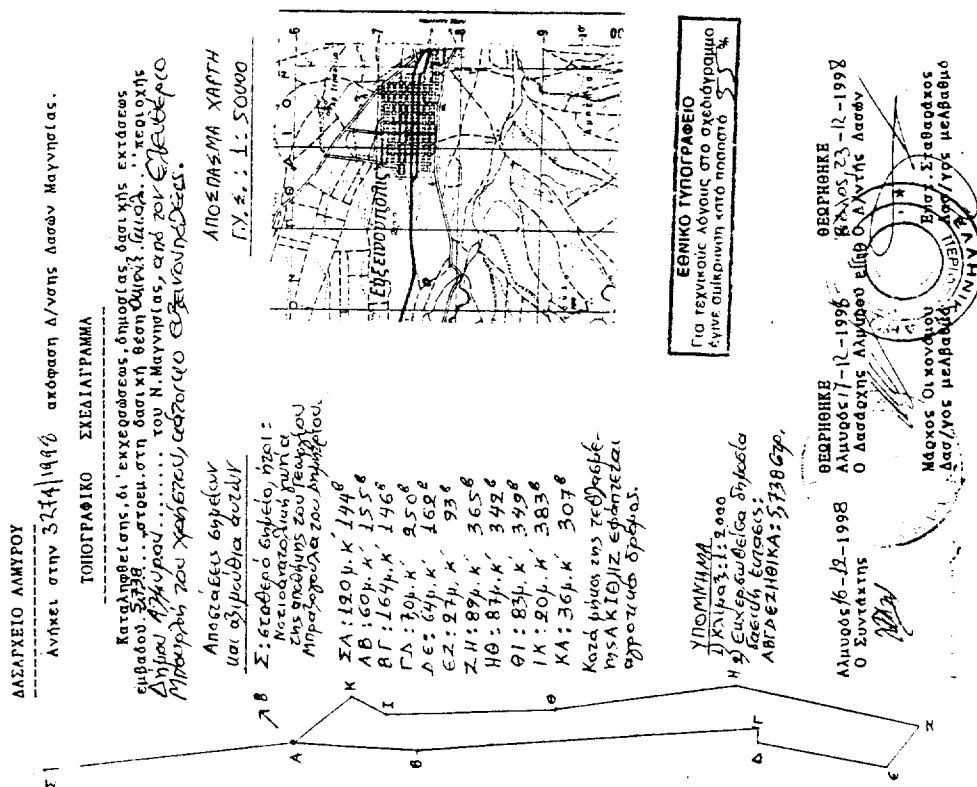 ΔΑΣΑΡΧΕΙΟ ΑΛΜΥΡΟΥ
Ανήκει στην 3274/1998 απόφαση Δ/νσης Δασών Μαγνησίας.
ΤΟΠΟΓΡΑΦΙΚΟ ΣΧΕΔΙΑΓΡΑΜΜΑ
Καταληφθείσης, δι' εκχερσώσεως, δημοσίας δασικής εκτάσεως
εμβαδού 5,738 στρεμ. στη δασική θέση περιοχής
Δήμου Αλμυρού του Ν. Μαγνησίας, από τον Ελευθέριο
Μπουρλή του Χρήστου, κάτοικο Ευξεινουπόλεως.
Αποστάσεις σημείων
και αζιμούθια αυτών
Σ: σταθερό σημείο, ήτοι:
Νοτιοανατολική γωνία
της αποθήκης του Γεωργίου
του Δημητρίου.
ΣΑ: 120μ.κ' 144β
ΑΒ: 60μ.κ' 155β
ΒΓ: 164μ.κ' 146β
ΓΔ: 7,0μ.κ' 250β
ΔΕ: 64μ.κ' 162β
ΕΖ: 27μ.κ' 93β
ΖΗ: 89μ.κ' 365β
ΗΘ: 87μ.κ' 342β
ΘΙ: 83μ.κ' 349β
ΙΚ: 20μ.κ' 383β
ΚΑ: 36μ.κ' 307β
Κατά μήκος της τεθλασμέ-
νης ΑΚΙΘΗΖ εφάπτεται
αγροτικός δρόμος.
ΥΠΟΜΝΗΜΑ
1) Κλίμαξ: 1:2.000
2) Εκχερσωθείσα δημοσία
δασική έκτασις:
ΑΒΓΔΕΖΗΘΙΚΑ: 5,738 στρ.
ΑΠΟΣΠΑΣΜΑ ΧΑΡΤΗ
Γ.Υ.Σ.: 1:50000
Εὐξεινούπολις
-6
-7
-8
-9
-10
ΕΘΝΙΚΟ ΤΥΠΟΓΡΑΦΕΙΟ
Για τεχνικούς λόγους στο σχεδιάγραμμα
έγινε σμίκρυνση κατά ποσοστό 35 %
Αλμυρός 16-12-1998
Ο Συντάκτης
ΘΕΩΡΗΘΗΚΕ
Αλμυρός 17-12-1998
Ο Δασάρχης Αλμυρού
Μάρκος Οικονόμου
Δασ/γος με Α βαθμό
ΘΕΩΡΗΘΗΚΕ
Βόλος, 23-12-1998
Ο Δ/ντής Δασών
Ευστ. Σταθαράκος
Δασ/γος με Α βαθμό
Σ
Β
Α
Κ
Ι
Β
Θ
Γ
Δ
Η
Ε
Ζ